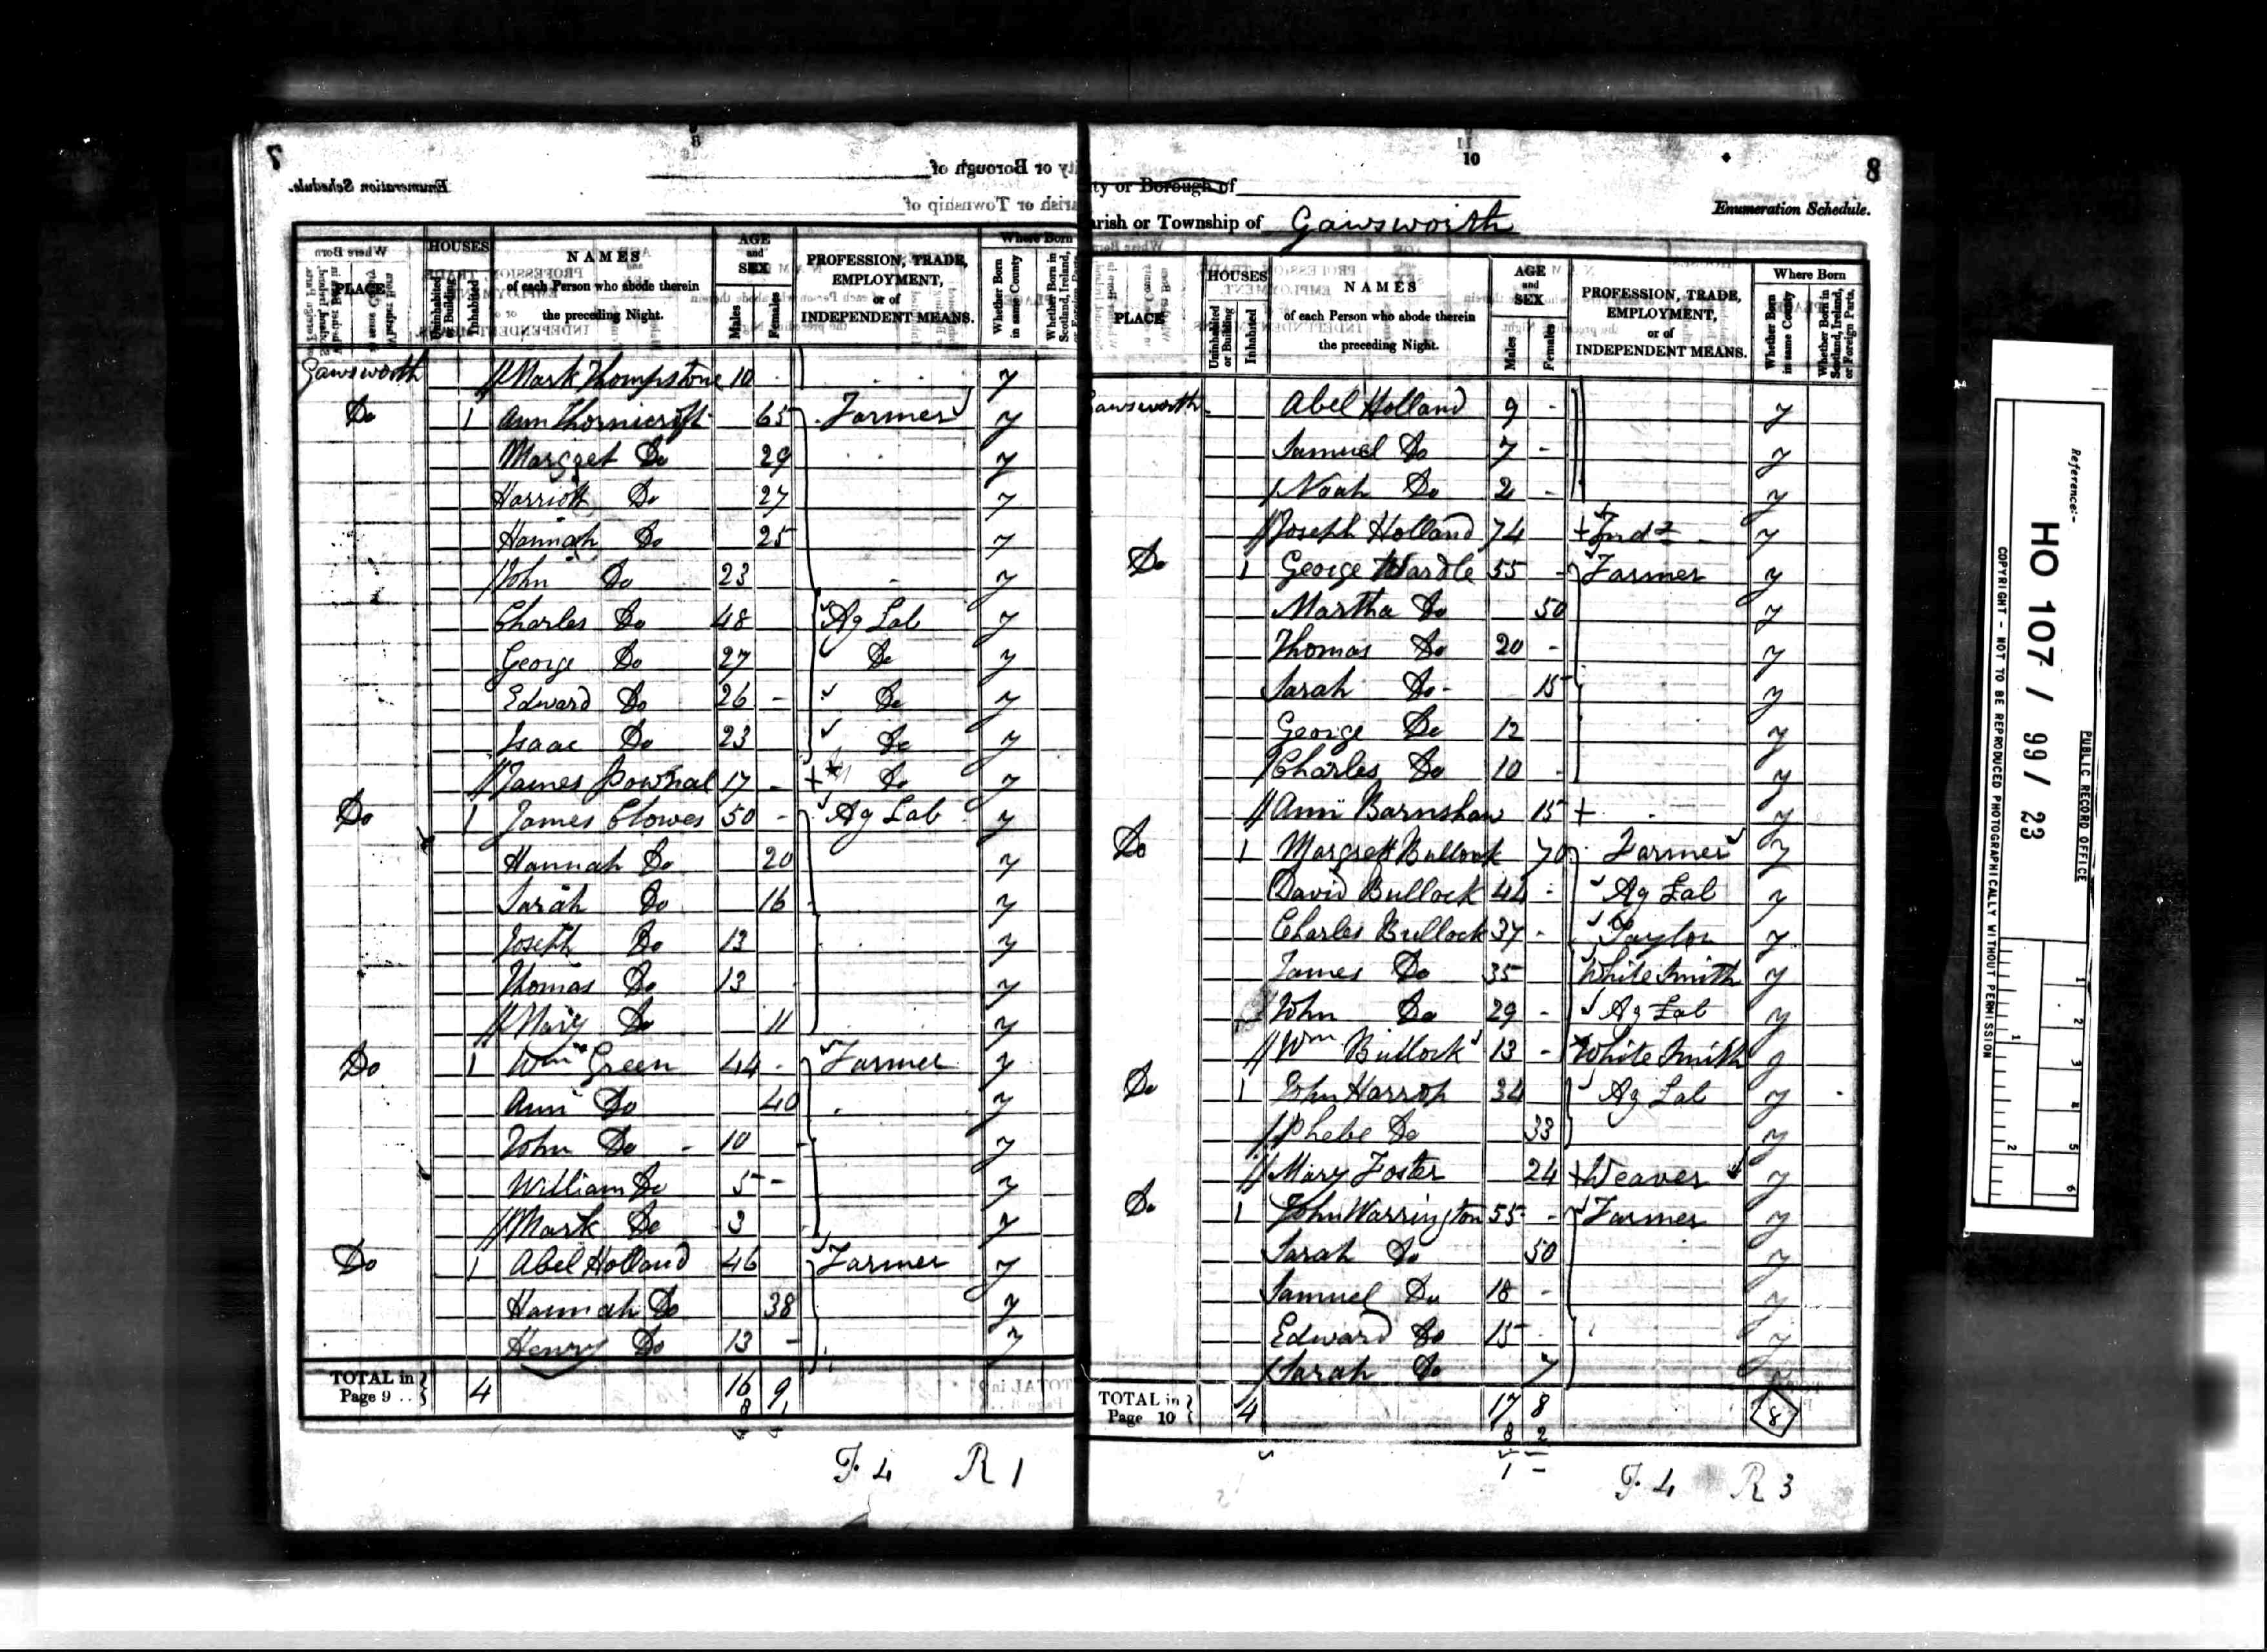 8
10
City or Borough of
Parish or Township of Gawsworth
Enumeration Schedule.
PLACE
HOUSES
Uninhabited or Building
Inhabited
NAMES
of each Person who abode therein
the preceding Night.
AGE
and
SEX
Males
Females
PROFESSION, TRADE,
EMPLOYMENT,
or of
INDEPENDENT MEANS.
Where Born
Whether Born in same County
Whether Born in Scotland, Ireland,
Gawsworth // Mark Thompstone 10 y
Do 1 Ann Thornicroft 65 Farmer y
Margret Do 29 y
Harriott Do 27 y
Hannah Do 25 y
/ John Do 23 y
Charles Do 48 Ag Lab y
George Do 27 Do y
Edward Do 26 - Do y
Isaac Do 23 Do y
// James Pownal 17 - + Do y
Do 1 James Clowes 50 - Ag Lab y
Hannah Do 20 y
Sarah Do 16 y
Joseph Do 13 y
Thomas Do 13 y
// Mary Do 11 y
Do 1 Wm Green 44 - Farmer y
Ann Do 40 y
John Do - 10 - y
William Do 5 - y
// Mark Do 3 y
Do 1 Abel Holland 46 Farmer y
Hannah Do 38 y
Henry Do 13 - y
TOTAL in
Page 9 .. 4 16 9
F. 4 R 1
PLACE
HOUSES
Uninhabited or Building
Inhabited
NAMES
of each Person who abode therein
the preceding Night.
AGE
and
SEX
Males
Females
PROFESSION, TRADE,
EMPLOYMENT,
or of
INDEPENDENT MEANS.
Where Born
Whether Born in same County
Whether Born in Scotland, Ireland, or Foreign Parts.
Gawsworth Abel Holland 9 - y
Samuel Do 7 - y
/ Noah Do 2 - y
// Joseph Holland 74 + Ind y
Do 1 George Wardle 55 - Farmer y
Martha Do 50 y
Thomas Do 20 - y
Sarah Do - 15 y
George Do 12 y
/ Charles Do 10 - y
// Ann Barnshaw 15 + y
Do 1 Margrett Bullock 70 Farmer y
David Bullock 44 - Ag Lab y
Charles Bullock 37 - Taylor y
James Do 35 White Smith y
/ John Do 29 - Ag Lab y
// Wm Bullock 13 - White Smith y
Do 1 John Harrop 34 Ag Lab y
// Phebe Do 33 y
// Mary Foster 24 + Weaver y
Do 1 John Warrington 55 - Farmer y
Sarah Do 50 y
Samuel Do 18 - y
Edward Do 15 - y
/ Sarah Do 7
TOTAL in
Page 10 4 17 8
8 2
8
F. 4 R 3
Reference:-
HO 107 / 99 / 23
PUBLIC RECORD OFFICE
COPYRIGHT - NOT TO BE REPRODUCED PHOTOGRAPHICALLY WITHOUT PERMISSION
1 2 3 4 5 6
1 2